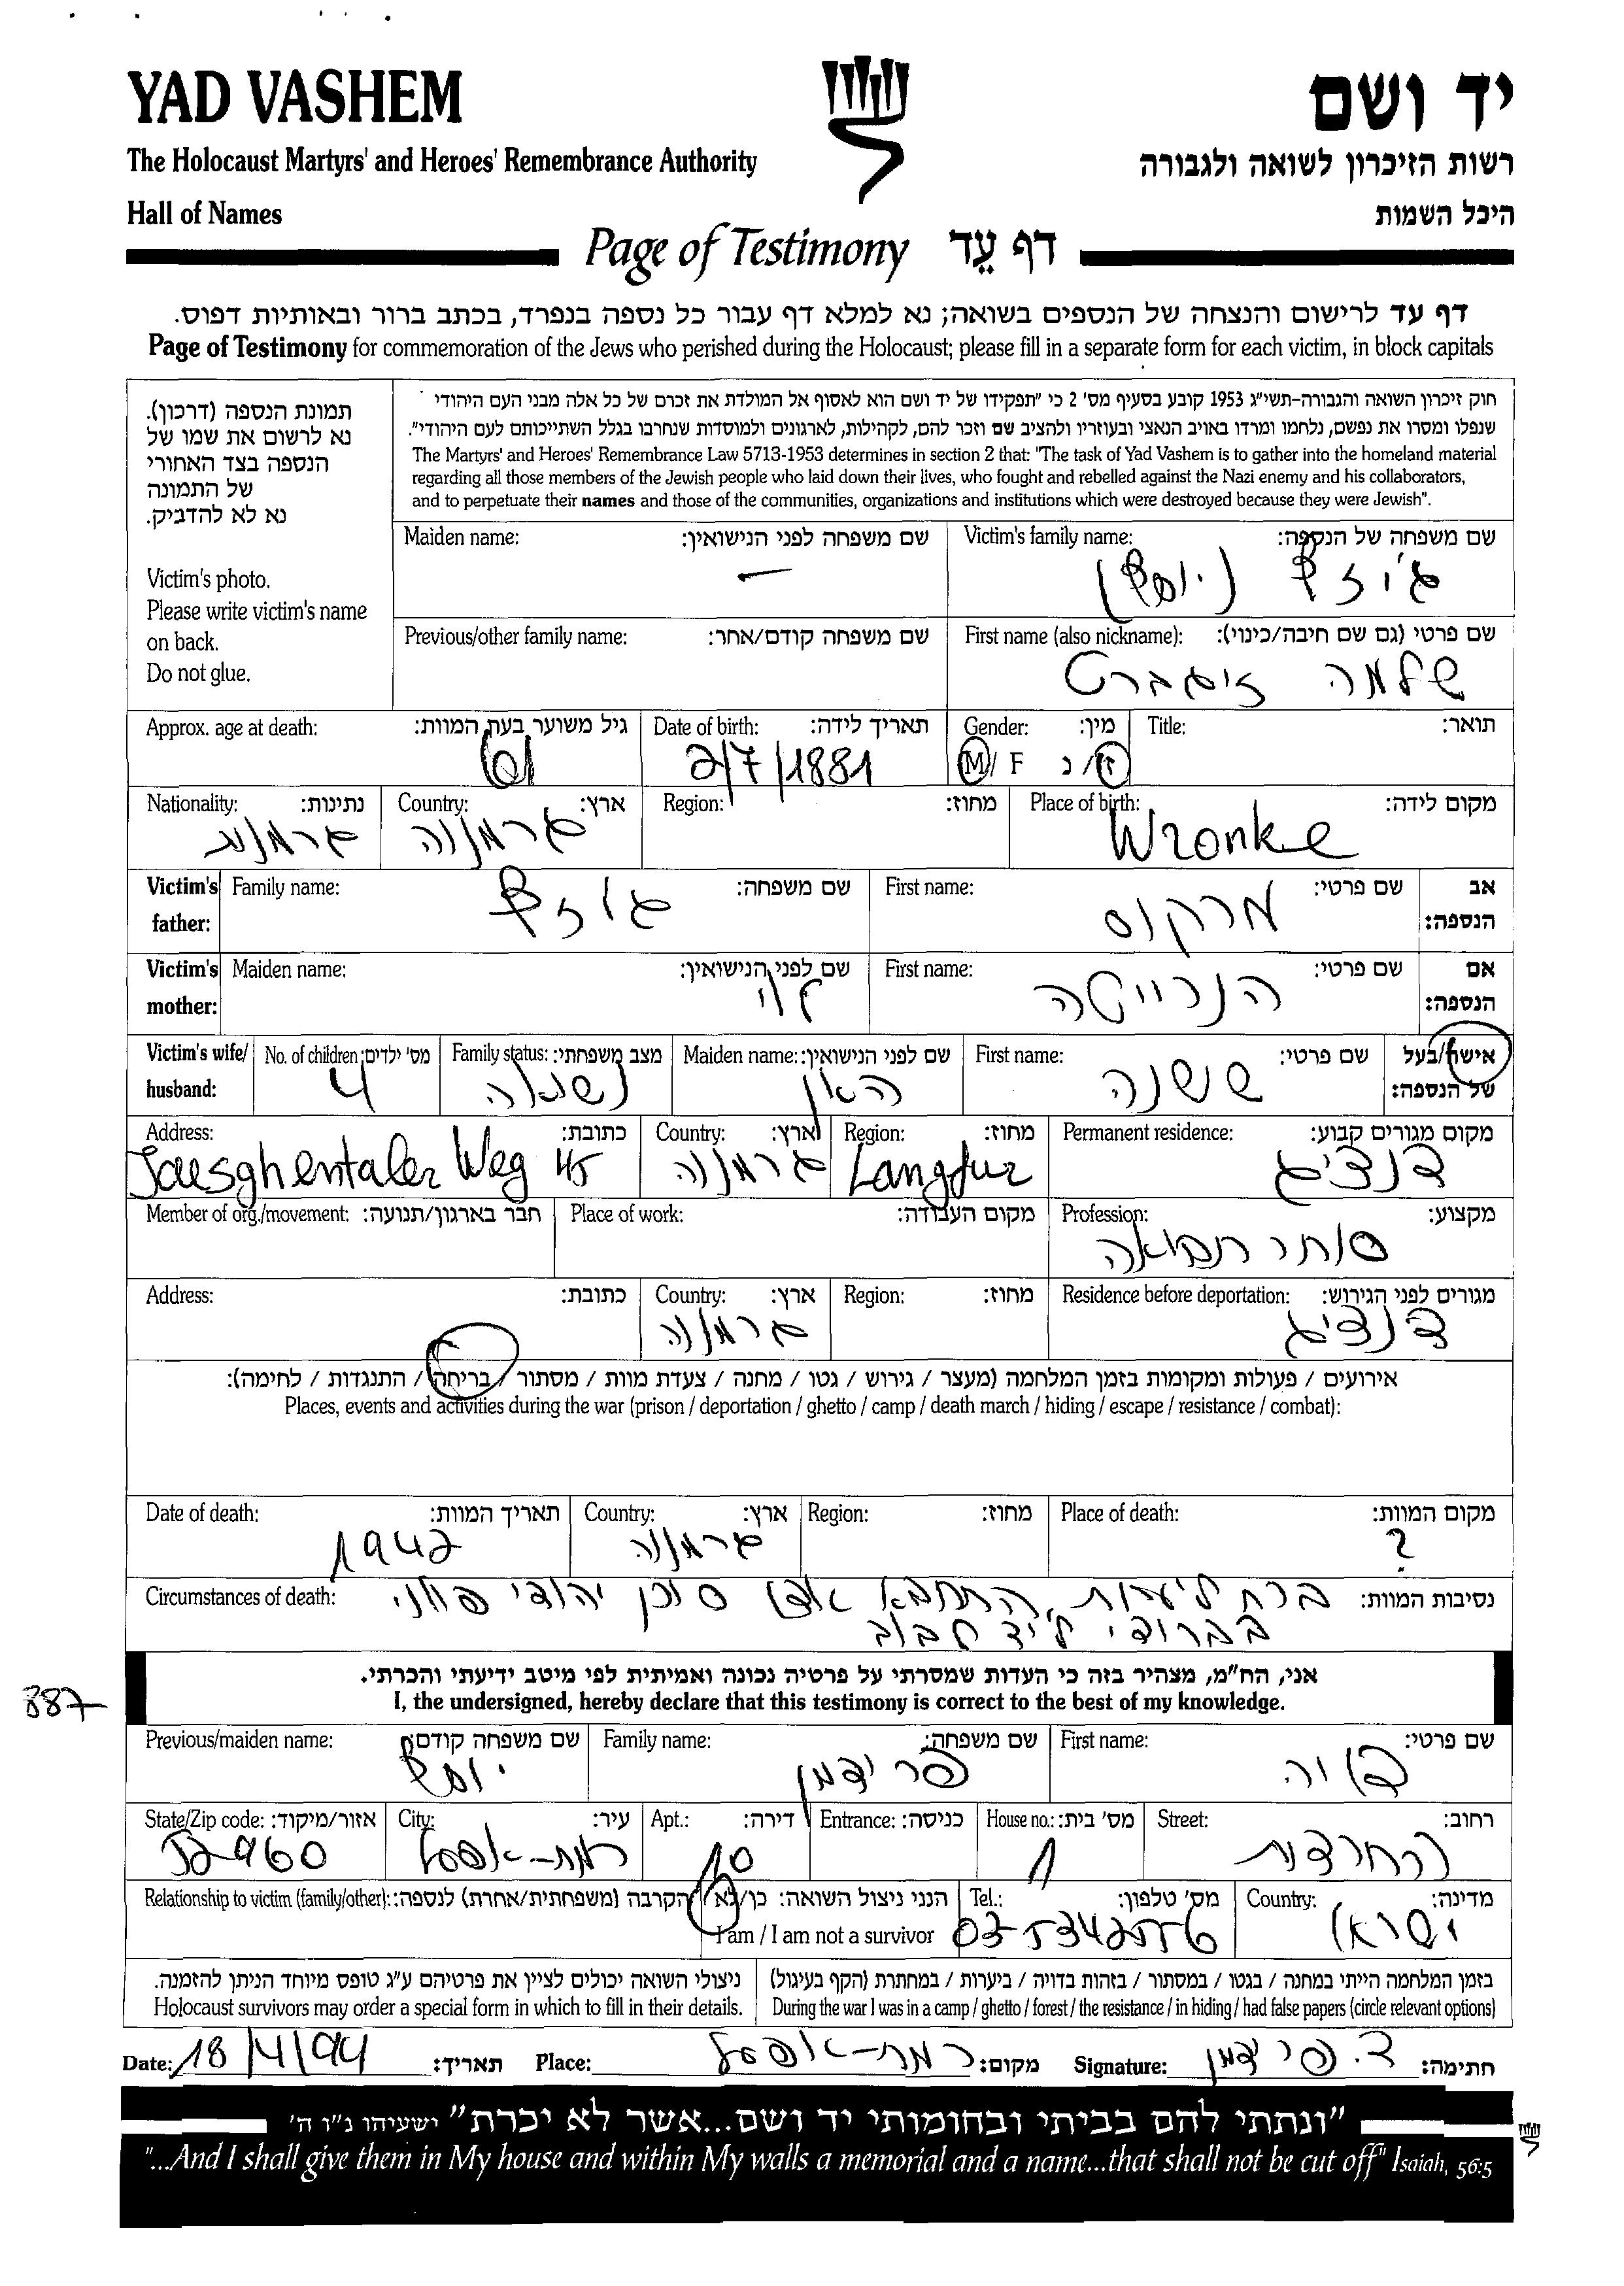 YAD VASHEM
יד ושם
The Holocaust Martyrs' and Heroes' Remembrance Authority
רשות הזיכרון לשואה ולגבורה
Hall of Names
היכל השמות
Page of Testimony דף עֵד
דף עד לרישום והנצחה של הנספים בשואה; נא למלא דף עבור כל נספה בנפרד, בכתב ברור ובאותיות דפוס.
Page of Testimony for commemoration of the Jews who perished during the Holocaust; please fill in a separate form for each victim, in block capitals
תמונת הנספה (דרכון).
נא לרשום את שמו של
הנספה בצד האחורי
של התמונה
נא לא להדביק.
Victim's photo.
Please write victim's name
on back.
Do not glue.
חוק זיכרון השואה והגבורה-תשי"ג 1953 קובע בסעיף מס' 2 כי "תפקידו של יד ושם הוא לאסוף אל המולדת את זכרם של כל אלה מבני העם היהודי
שנפלו ומסרו את נפשם, נלחמו ומרדו באויב הנאצי ובעוזריו ולהציב שם וזכר להם, לקהילות, לארגונים ולמוסדות שנחרבו בגלל השתייכותם לעם היהודי".
The Martyrs' and Heroes' Remembrance Law 5713-1953 determines in section 2 that: "The task of Yad Vashem is to gather into the homeland material
regarding all those members of the Jewish people who laid down their lives, who fought and rebelled against the Nazi enemy and his collaborators,
and to perpetuate their names and those of the communities, organizations and institutions which were destroyed because they were Jewish".
Victim's family name: שם משפחה של הנספה:
ג'וזף (יוסף)
Maiden name: שם משפחה לפני הנישואין:
—
First name (also nickname): שם פרטי (גם שם חיבה/כינוי):
שלמה זיגברט
Previous/other family name: שם משפחה קודם/אחר:
Title: תואר:
Gender: מין:
M/ F ז/נ
Date of birth: תאריך לידה:
2/7/1881
Approx. age at death: גיל משוער בעת המוות:
61
Place of birth: מקום לידה:
Wronke
Region: מחוז:
Country: ארץ:
גרמניה
Nationality: נתינות:
גרמנית
Victim's father: אב הנספה:
First name: שם פרטי:
מרקוס
Family name: שם משפחה:
ג'וזף
Victim's mother: אם הנספה:
First name: שם פרטי:
הנרייטה
Maiden name: שם לפני הנישואין:
לוי
Victim's wife/ husband: אישה/בעל של הנספה:
First name: שם פרטי:
Maiden name: שם לפני הנישואין:
האן
Family status: מצב משפחתי:
נשואה
No. of children: מס' ילדים:
4
Permanent residence: מקום מגורים קבוע:
דנציג
Region: מחוז:
Langfur
Country: ארץ:
גרמניה
Address: כתובת:
Jaesghentaler Weg 45
Profession: מקצוע:
סוחר תבואה
Place of work: מקום העבודה:
Member of org./movement: חבר בארגון/תנועה:
Residence before deportation: מגורים לפני הגירוש:
דנציג
Region: מחוז:
Country: ארץ:
גרמניה
Address: כתובת:
אירועים / פעולות ומקומות בזמן המלחמה (מעצר / גירוש / גטו / מחנה / צעדת מוות / מסתור / בריחה / התנגדות / לחימה):
Places, events and activities during the war (prison / deportation / ghetto / camp / death march / hiding / escape / resistance / combat):
Place of death: מקום המוות:
?
Region: מחוז:
Country: ארץ:
גרמניה
Date of death: תאריך המוות:
1942
Circumstances of death: נסיבות המוות:
ברח ליערות, התחבא אצל סוכן יהודי פולני
בברודי ליד לבוב
אני, הח"מ, מצהיר בזה כי העדות שמסרתי על פרטיה נכונה ואמיתית לפי מיטב ידיעתי והכרתי.
I, the undersigned, hereby declare that this testimony is correct to the best of my knowledge.
887
First name: שם פרטי:
Family name: שם משפחה:
פרידמן
Previous/maiden name: שם משפחה קודם:
יוסף
Street: רחוב:
החרצית
House no.: מס' בית:
1
Entrance: כניסה:
Apt.: דירה:
10
City: עיר:
רמת-אפעל
State/Zip code: אזור/מיקוד:
52960
Country: מדינה:
ישראל
Tel.: מס' טלפון:
03-5342556
הנני ניצול השואה: כן/לא
I am / I am not a survivor
Relationship to victim (family/other): הקרבה (משפחתית/אחרת) לנספה:
בזמן המלחמה הייתי במחנה / בגטו / במסתור / בזהות בדויה / ביערות / במחתרת (הקף בעיגול)
During the war I was in a camp / ghetto / forest / the resistance / in hiding / had false papers (circle relevant options)
ניצולי השואה יכולים לציין את פרטיהם ע"ג טופס מיוחד הניתן להזמנה.
Holocaust survivors may order a special form in which to fill in their details.
Date: 18/4/94 תאריך: Place: רמת-אפעל מקום: Signature: צ. פרידמן חתימה:
"ונתתי להם בביתי ובחומותי יד ושם...אשר לא יכרת" ישעיהו נ"ו ה'
"...And I shall give them in My house and within My walls a memorial and a name...that shall not be cut off" Isaiah, 56:5